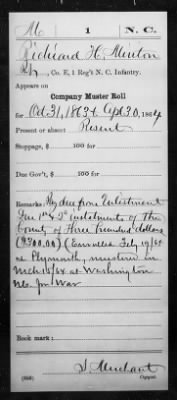 M | 1 | N. C.
Richard H. Minton
Pt., Co. E, 1 Reg't N. C. Infantry.
Appears on
Company Muster Roll
for Oct 31, 1863 to Apl 30, 1864
Present or absent Present
Stoppage, $ 100 for
Due Gov't, $ 100 for
Remarks: Pay due from Enlistment
Due 1st & 2d instalments of the
bounty of Three hundred dollars
($300.00) (Enrolled Feby 19/64
at Plymouth, mustered in
Mch 1/64 at Washington
N.C. for War
Book mark:
Merchant
(358) Copyist.